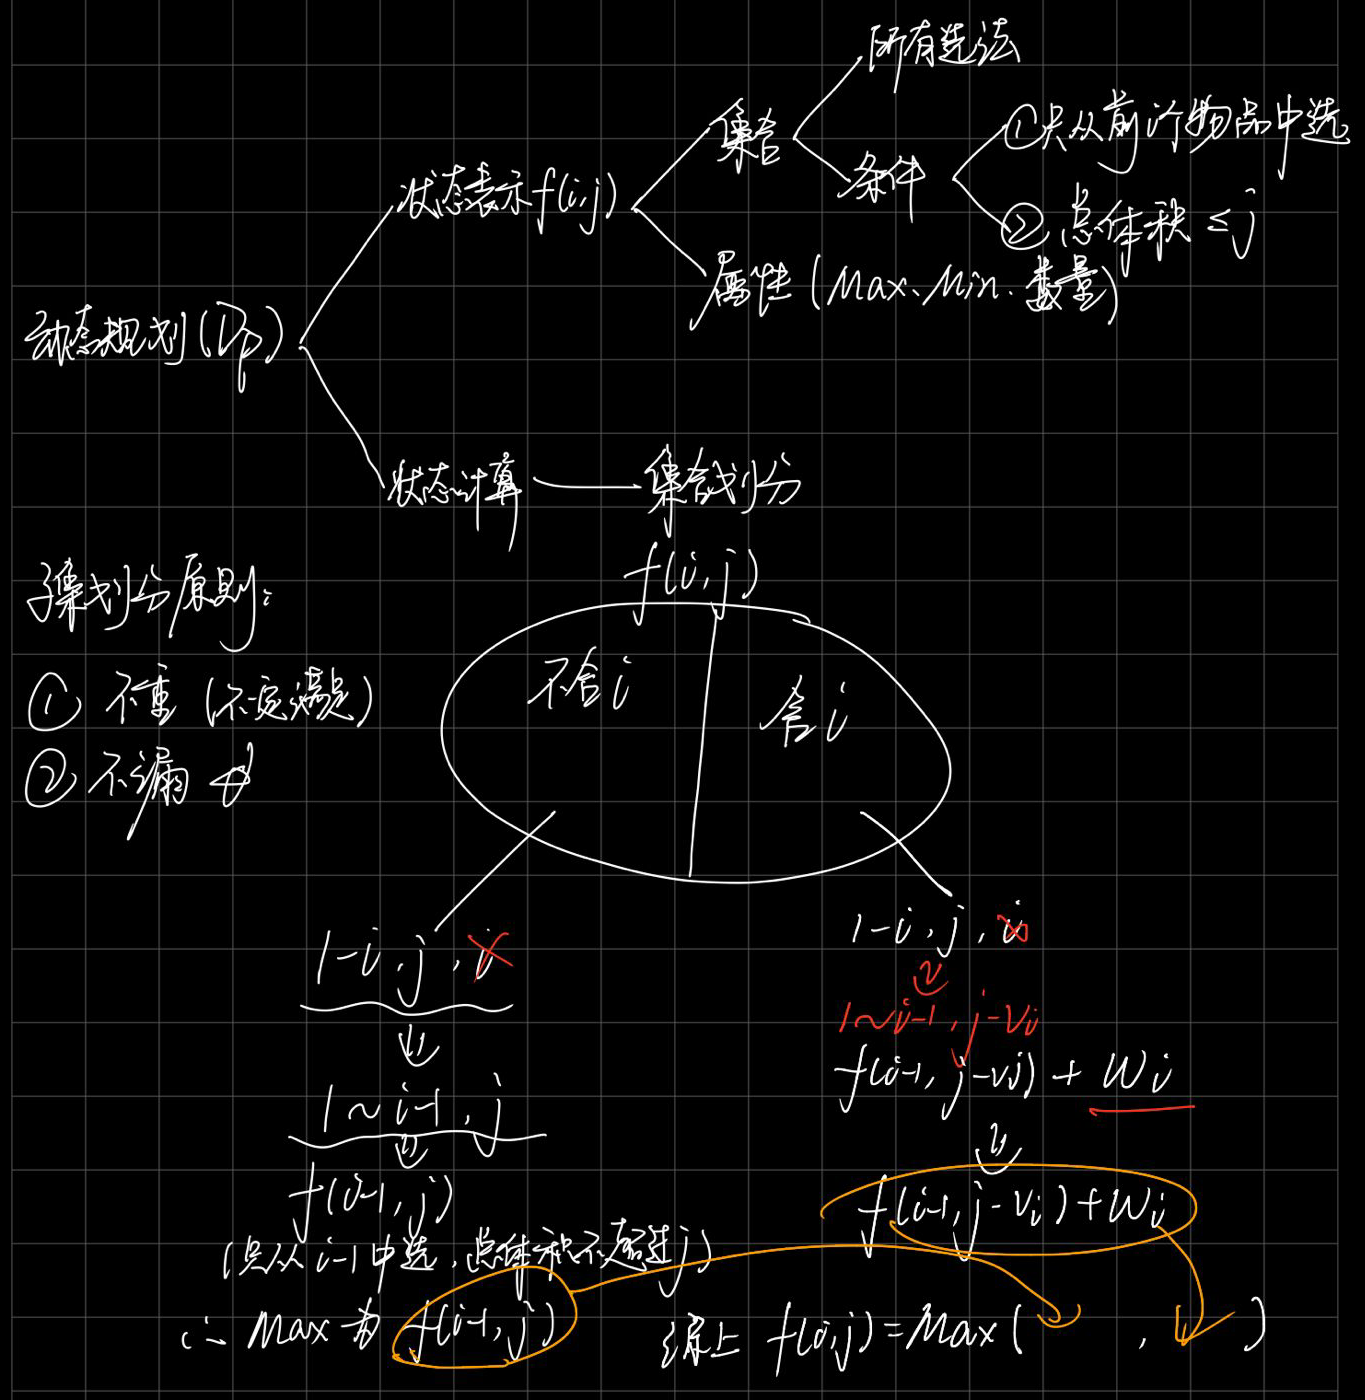 所有选法
集合
条件
①只从前i个物品中选
②总体积 ≤ j
状态表示f(i,j)
属性(Max、Min、数量)
动态规划(Dp)
状态计算
集合划分
子集划分原则:
①不重(不一定满足)
②不漏
f(i,j)
不含i
含i
1-i,j,i
1~i-1,j
f(i-1,j)
(只从i-1中选,总体积不超过j)
∴ Max为 f(i-1,j)
1-i,j,i
1~i-1,j-Vi
f(i-1,j-vi) + Wi
f(i-1,j-Vi)+Wi
综上 f(i,j)=Max( , )